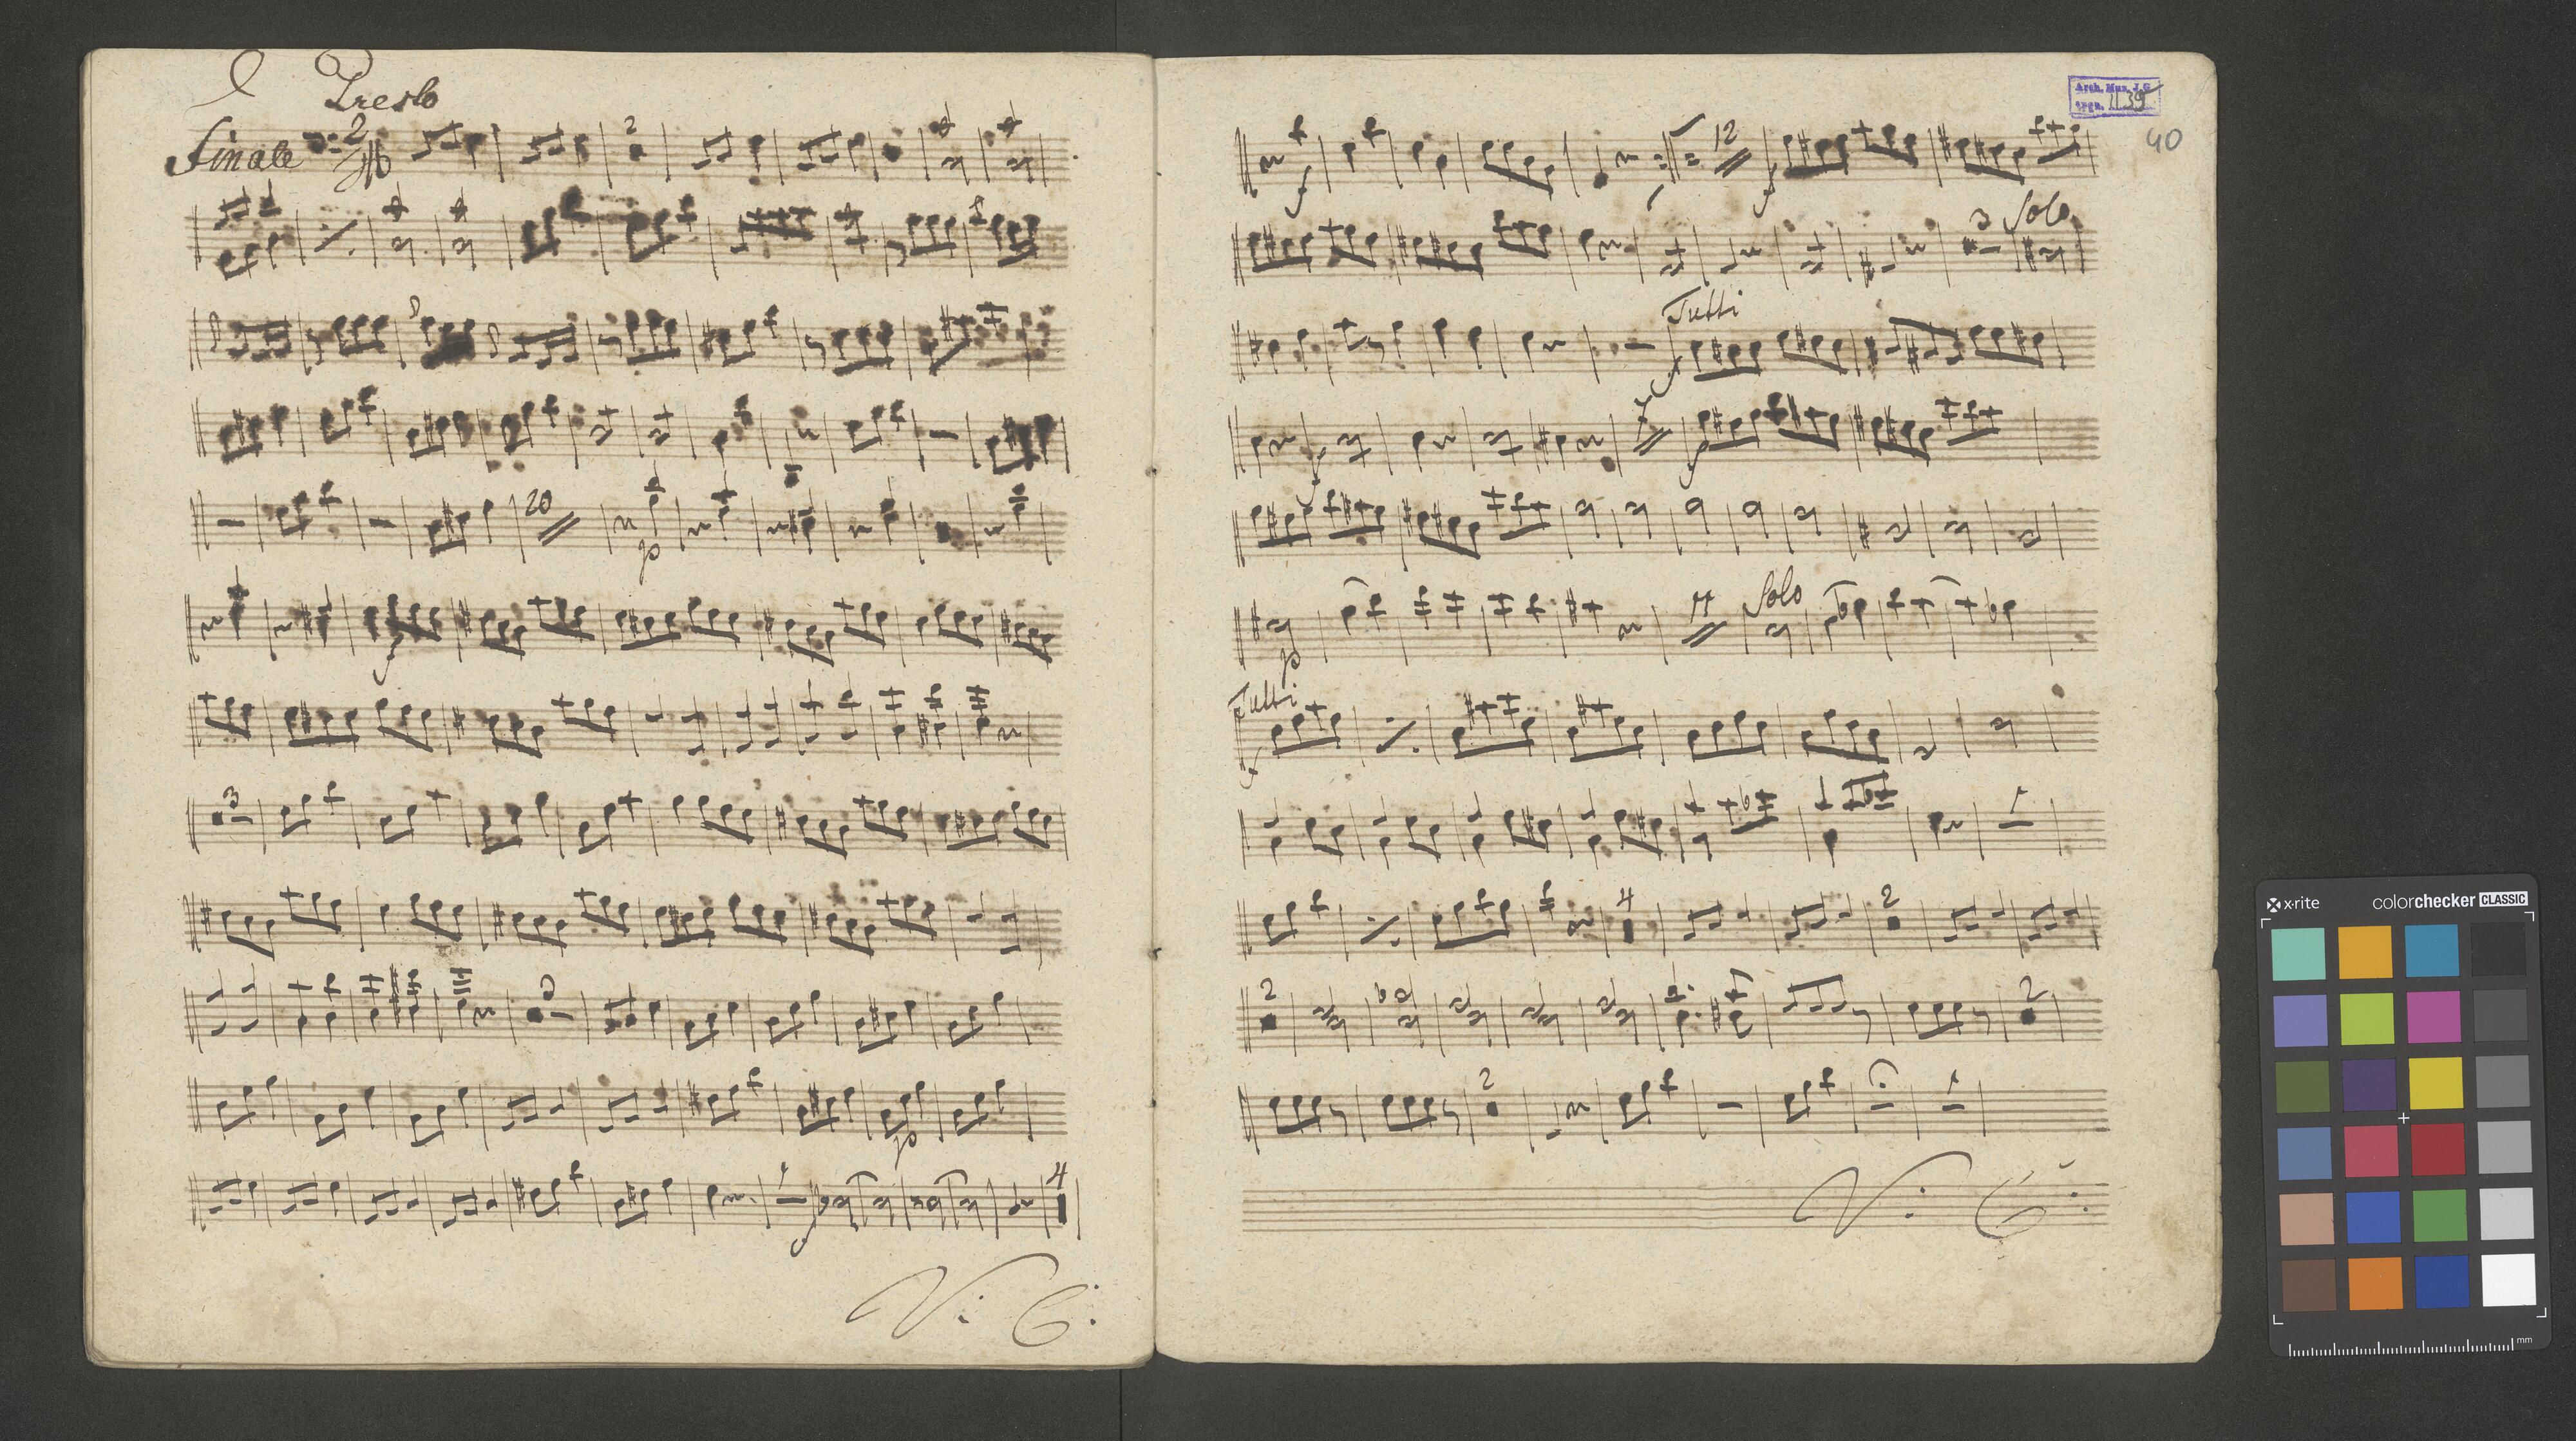 Presto
Finale
2
2
20
p
f
3
2
p
1
f
4
V: S:
Arch. Mus. J. G.
1139
40
12
f
f
3 Solo
Tutti
f
f
7
f
p
11
Solo
Tutti
f
1
4
2
2
2
2
1
V: S:
x-rite
colorchecker CLASSIC
mm